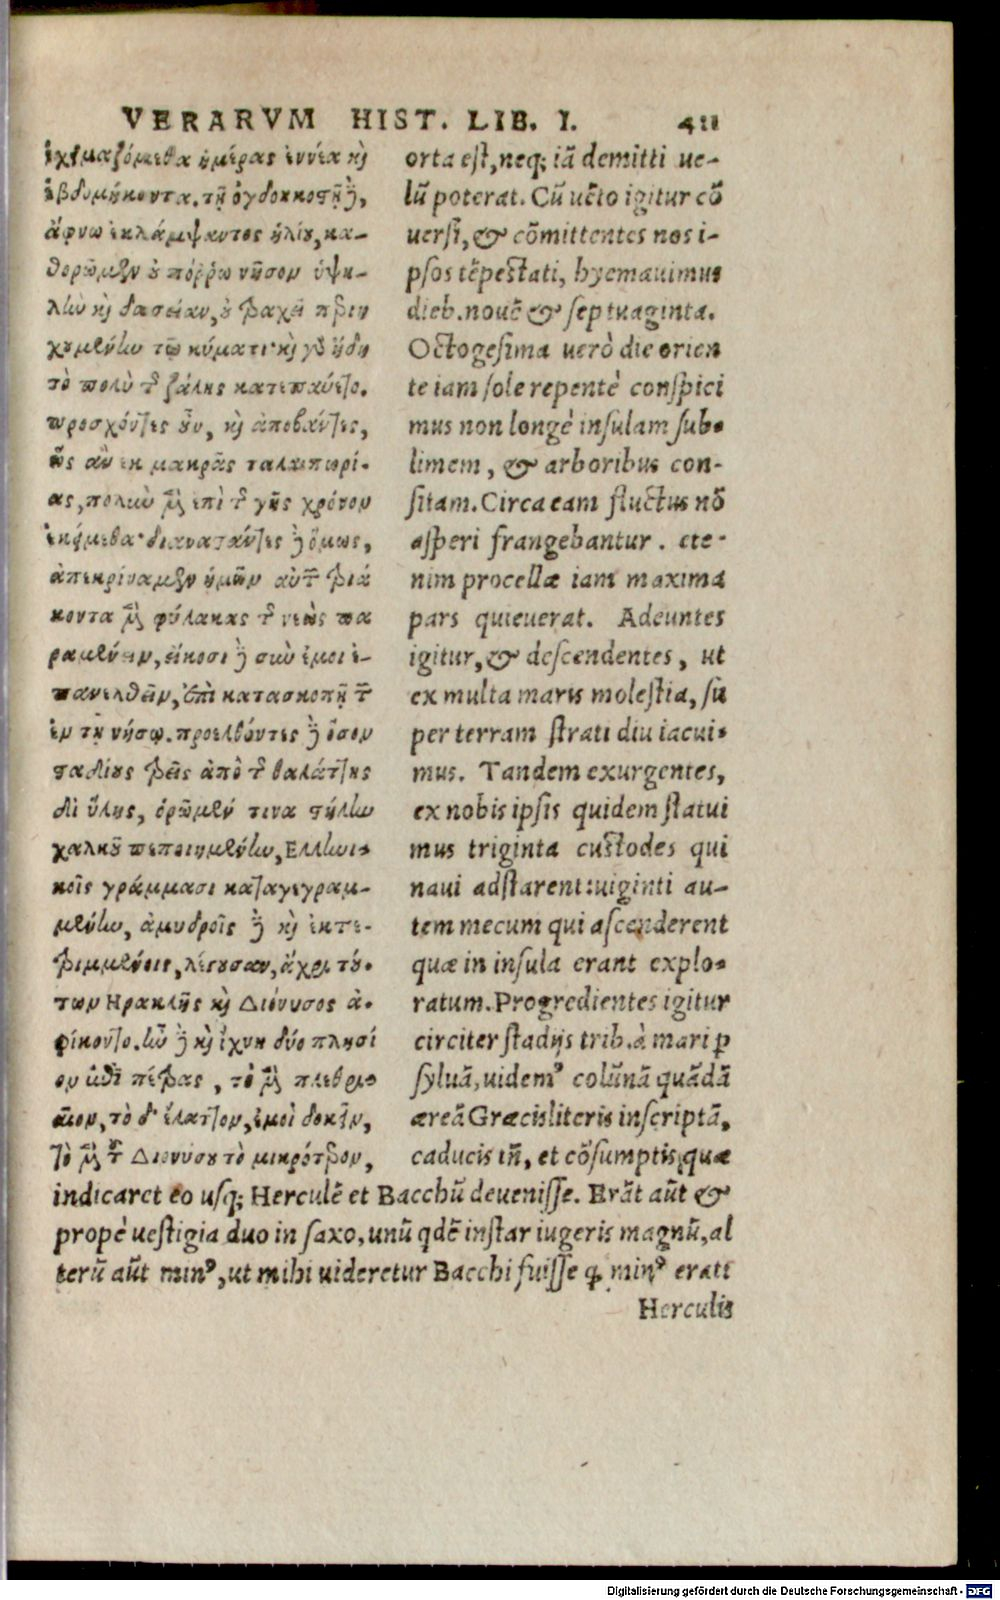 VERARVM HIST. LIB. I. 411
ἐχειμαζόμεθα ἡμέρας ἐννέα κỳ
ἑβδομήκοντα. τῇ ὀγδοηκοστῇ δὲ,
ἄφνω ἐκλάμψαντος ἡλίου, κα-
θορῶμεν οὐ πόῤῥω νῆσον ὑψη-
λὴν κỳ δασεῖαν, οὐ τραχεῖ περιη
χουμένην τῷ κύματι· κỳ γὸ ἤδη
τὸ πολὺ τ ζάλης κατεπαύετο.
προσχόντες οὖν, κỳ ἀποβάντες,
ὡς ἂν ἐκ μακρᾶς ταλαιπωρί-
ας, πολιὼ μὲν ἐπὶ τ γῆς χρόνον
ἐκείμεθα· διαναστάντες δὲ ὅμως,
ἀπεκρίναμεν ἡμῶν αὐτ τριά
κοντα μὲν φύλακας τ νεὼς πα
ραμένειν, εἴκοσι δὲ σὺν ἐμοὶ ἐ-
πανελθεῖν, ἐπὶ κατασκοπῇ τ
ἐν τῇ νήσῳ. προελθόντες δὲ ὅσον
σταδίους τρεῖς ἀπὸ τ θαλάττης
δι ὕλης, ὁρῶμέν τινα στήλην
χαλκοῦ πεποιημένην, Ελληνι-
κοῖς γράμμασι καταγεγραμ-
μένην, ἀμυδροῖς δὲ κỳ ἐκτε-
τριμμένοις, λέγουσαν, ἄχρι τού-
των Ηρακλῆς κỳ Διόνυσος ἀ-
φίκοντο. ἦν δὲ κỳ ἴχνη δύο πλησί
ον ἐπὶ πέτρας, τὸ μὲν πλεθρι-
αῖον, τὸ δ' ἔλαττον, ἐμοὶ δοκεῖν,
τὸ μὲν τ Διονύσου τὸ μικρότερον,
orta est, neq; iã demitti ue-
lũ poterat. Cũ uẽto igitur cõ
uersi, & cõmittentes nos i-
psos tẽpestati, hyemauimus
dieb. nouẽ & septuaginta.
Octogesima uerò die orien
te iam sole repentè conspici
mus non longè insulam sub-
limem, & arboribus con-
sitam. Circa eam fluctus nõ
asperi frangebantur. ete-
nim procellæ iam maxima
pars quieuerat. Adeuntes
igitur, & descendentes, ut
ex multa maris molestia, sũ
per terram strati diu iacui-
mus. Tandem exurgentes,
ex nobis ipsis quidem statui
mus triginta custodes qui
naui adstarent: uiginti au-
tem mecum qui ascenderent
quæ in insula erant explo-
ratum. Progredientes igitur
circiter stadijs trib. à mari p
syluã, uidem' colũnã quãdã
æreã Græcis literis inscriptã,
caducis tñ, et cõsumptis, quæ
indicaret eo usq; Herculẽ et Bacchũ deuenisse. Erãt aũt &
propè uestigia duo in saxo, unũ qdẽ instar iugeris magnũ, al
terũ aũt min', ut mihi uideretur Bacchi fuisse q min' erat:
Herculis
Digitalisierung gefördert durch die Deutsche Forschungsgemeinschaft - DFG